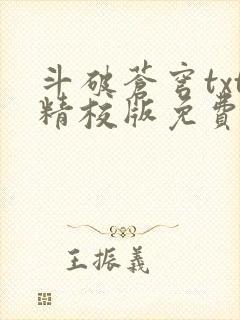 斗破蒼穹txt
精校版免費
王振義